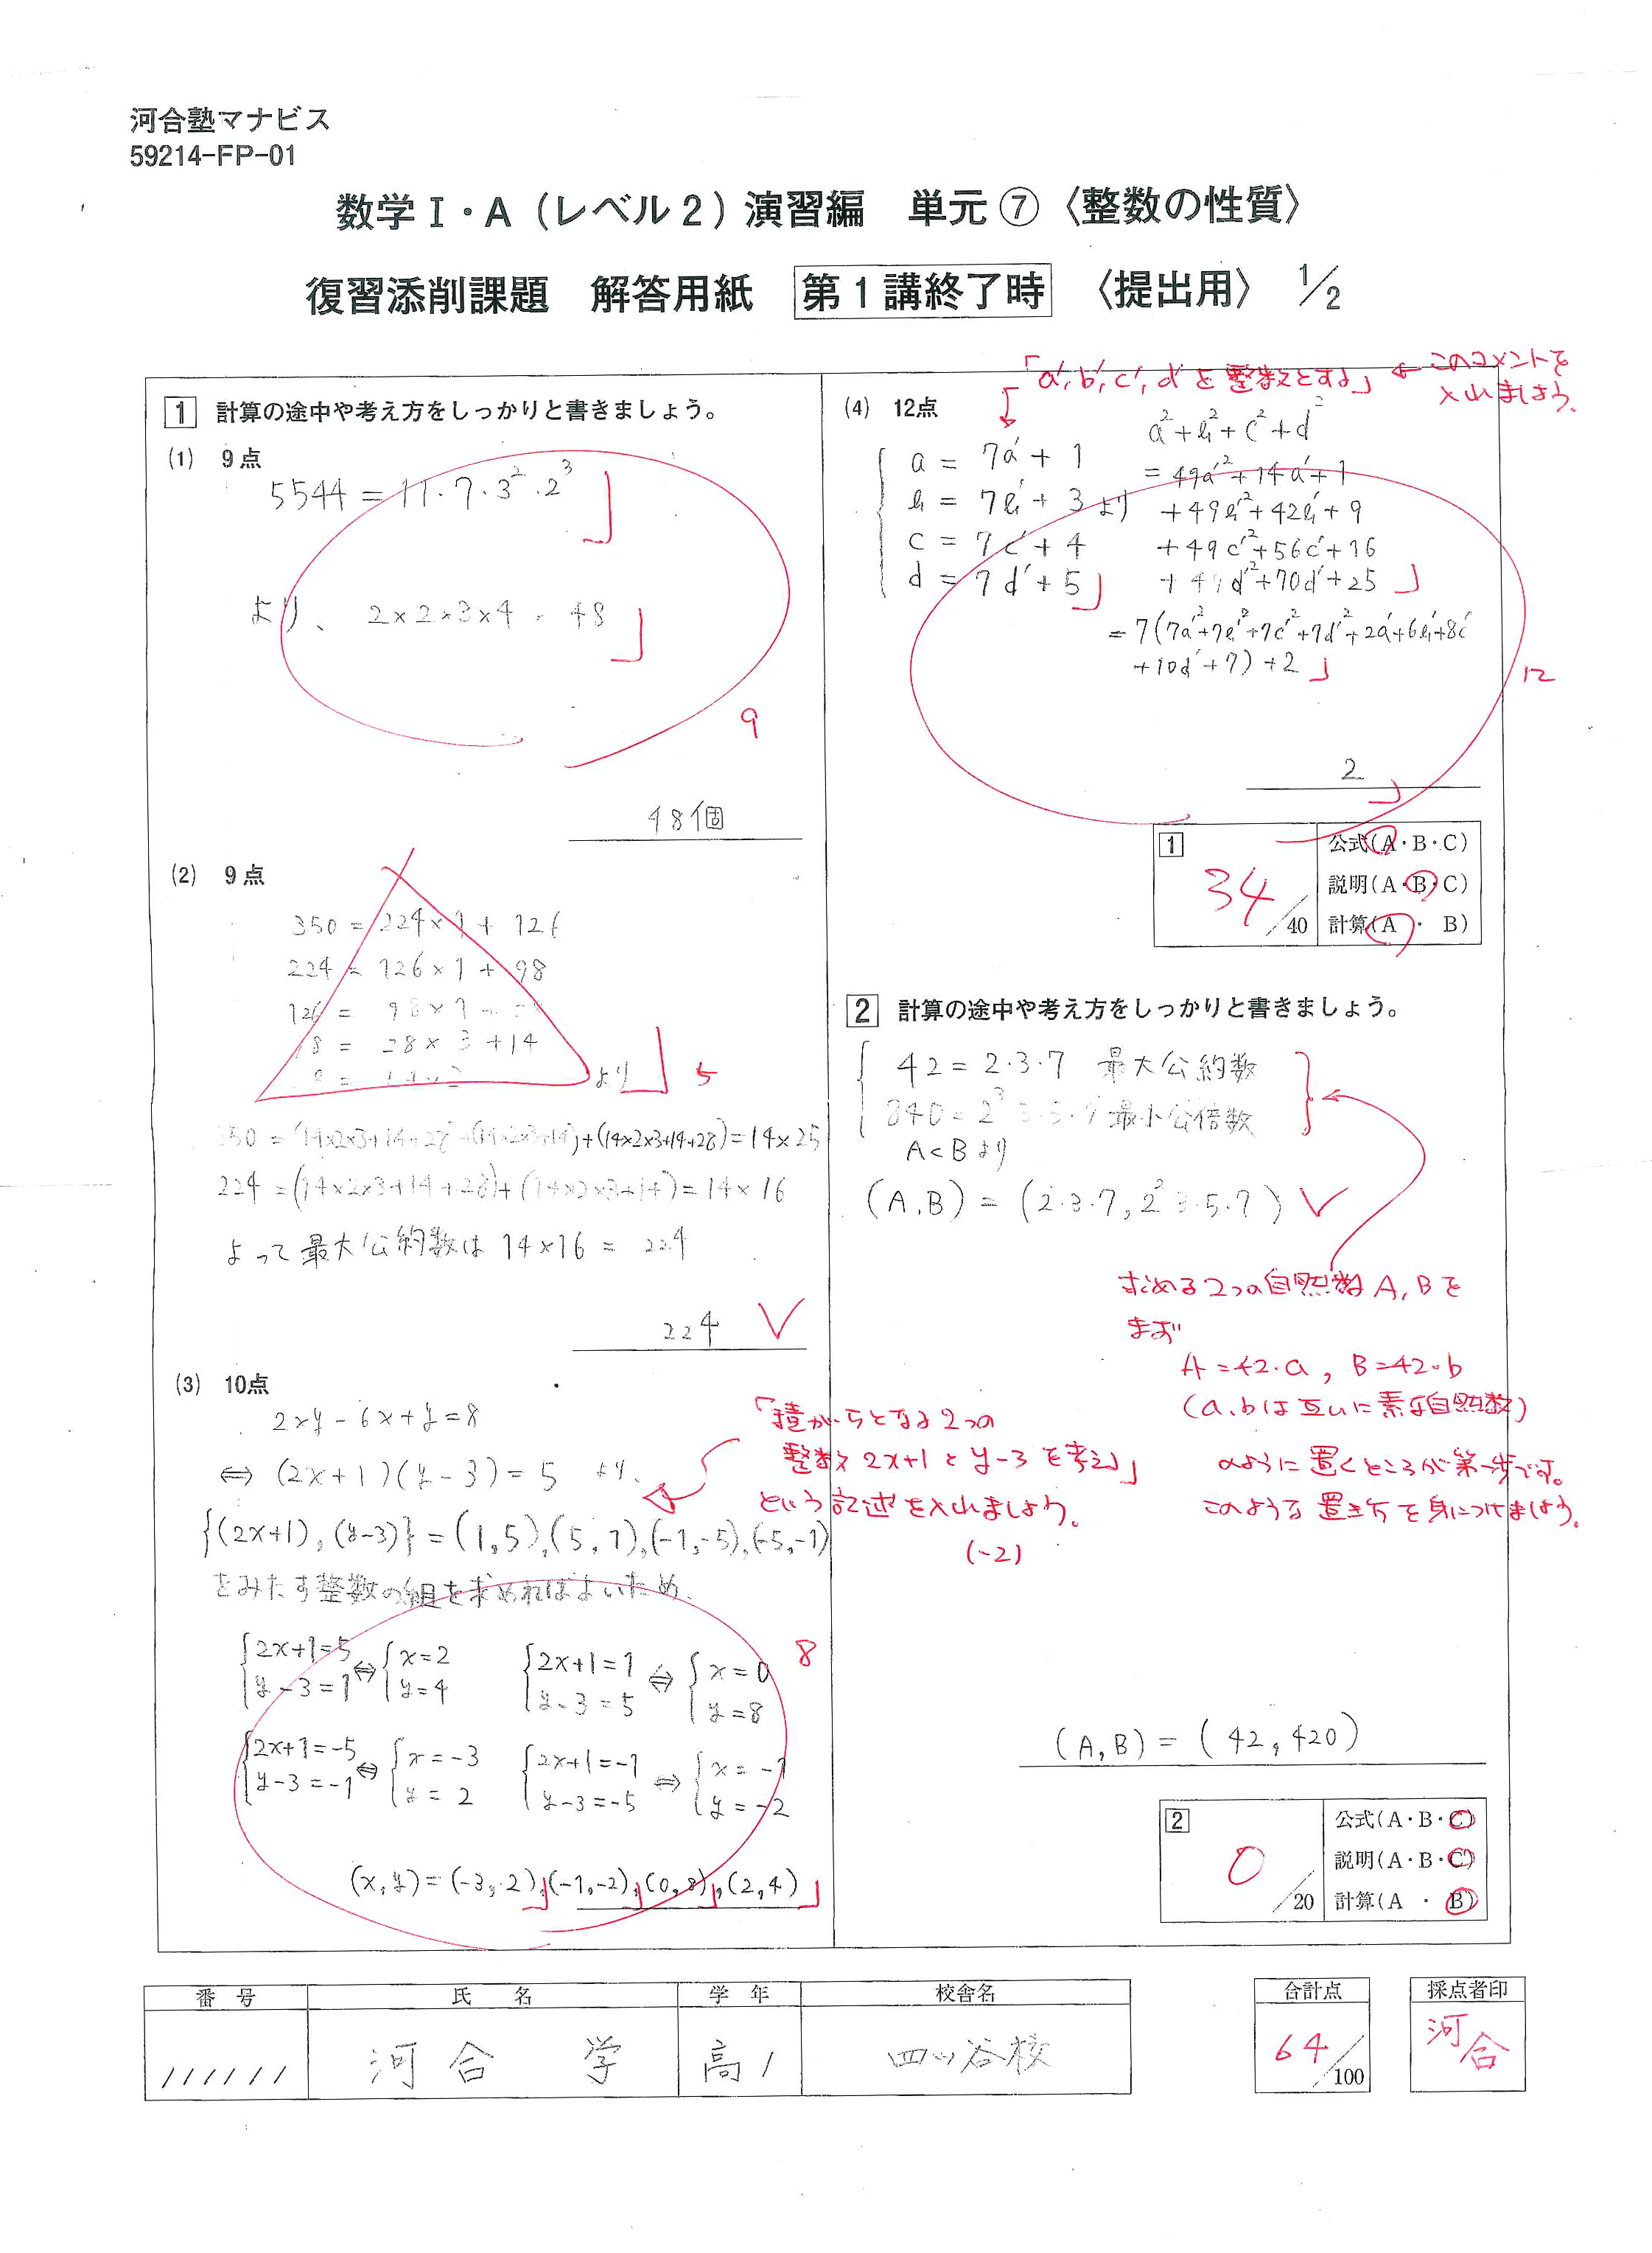 河合塾マナビス
59214-FP-01
数学Ⅰ・A（レベル２）演習編　単元⑦〈整数の性質〉
復習添削課題　解答用紙　第１講終了時　〈提出用〉　1/2
1　計算の途中や考え方をしっかりと書きましょう。
(1)　9点
5544 = 11・7・3²・2³
より、 2×2×3×4 = 48
9
48個
(2)　9点
350 = 224×1 + 126
224 = 126×1 + 98
126 = 98×1 + 28
98 = 28×3 + 14
28 = 14×2 より
5
350 = (14×2×3+14+28)+(14×2×3+14)+(14×2×3+14+28)=14×25
224 =(14×2×3+14+28)+(14×2×3+14)=14×16
よって最大公約数は 14×16 = 224
224
(3)　10点
2xy - 6x + y = 8
⇔ (2x+1)(y-3) = 5 より、
{(2x+1), (y-3)} = (1,5),(5,1),(-1,-5),(-5,-1)
をみたす整数の組を求めればよいため、
「積が5となる2つの
整数 2x+1 と y-3 を考える」
という記述を入れましょう。
(-2)
8
2x+1=5 ⇔ x=2
y-3=1 y=4
2x+1=1 ⇔ x=0
y-3=5 y=8
2x+1=-5 ⇔ x=-3
y-3=-1 y=2
2x+1=-1 ⇔ x=-1
y-3=-5 y=-2
(x,y)=(-3,2),(-1,-2),(0,8),(2,4)
「a',b',c',d'を整数とする」 ← このコメントを
入れましょう。
(4)　12点
a = 7a' + 1
b = 7b' + 3 より
c = 7c' + 4
d = 7d' + 5
a²+b²+c²+d²
= 49a'²+14a'+1
+49b'²+42b'+9
+49c'²+56c'+16
+49d'²+70d'+25
= 7(7a'²+7b'²+7c'²+7d'²+2a'+6b'+8c'
+10d'+7)+2
12
2
1
34／40
公式(A・B・C)
説明(A・B・C)
計算(A　・　B)
2　計算の途中や考え方をしっかりと書きましょう。
42 = 2・3・7 最大公約数
840 = 2³・3・5・7 最小公倍数
A<Bより
(A,B) = (2・3・7, 2²・3・5・7)
求める2つの自然数A,Bを
まず
A=42・a, B=42・b
(a,bは互いに素な自然数)
のように置くところが第一歩です。
このような置き方を身につけましょう。
(A,B) = (42,420)
2
0／20
公式(A・B・C)
説明(A・B・C)
計算(A　・　B)
番　号
氏　名
学　年
校舎名
合計点
採点者印
111111
河合　学
高1
四ッ谷校
64／100
河合